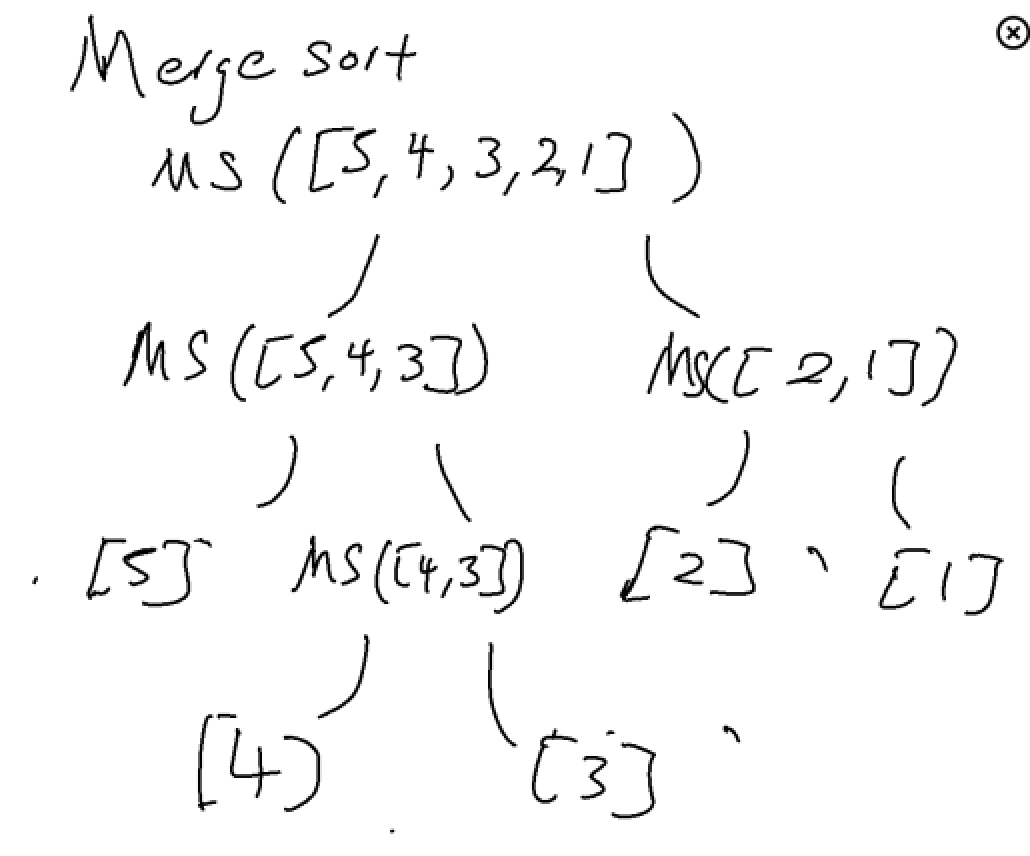 Merge sort
MS ([5,4,3,2,1])
MS([5,4,3]) MS([2,1])
[5] MS([4,3]) [2] [1]
[4) [3]